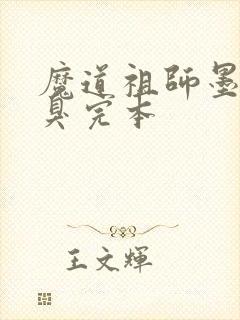 魔道祖師墨
臭完本
王文輝